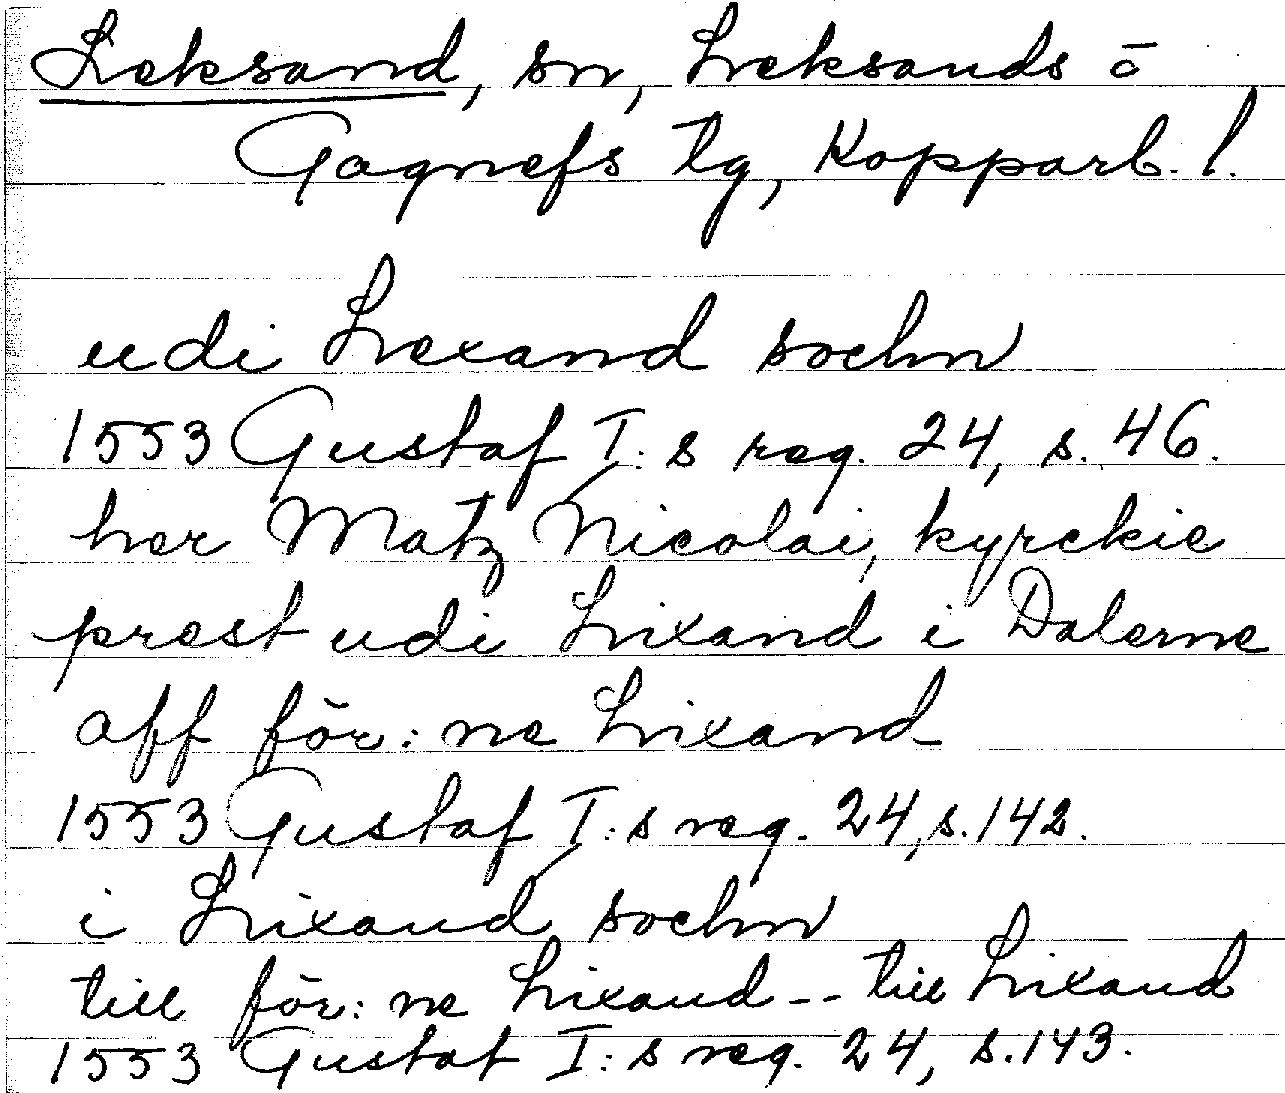 Leksand, sn, Leksands o
Gagnefs tg, Kopparb. l.
udi Lexand sochn
1553 Gustaf I:s reg. 24, s. 46.
her Matz Nicolai, kyrckie
prest udi Lixand i Dalerne
aff för:ne Lixand
1553 Gustaf I:s reg. 24, s. 142.
i Lixand sochn
till för:ne Lixand -- till Lixand
1553 Gustaf I:s reg. 24, s. 143.